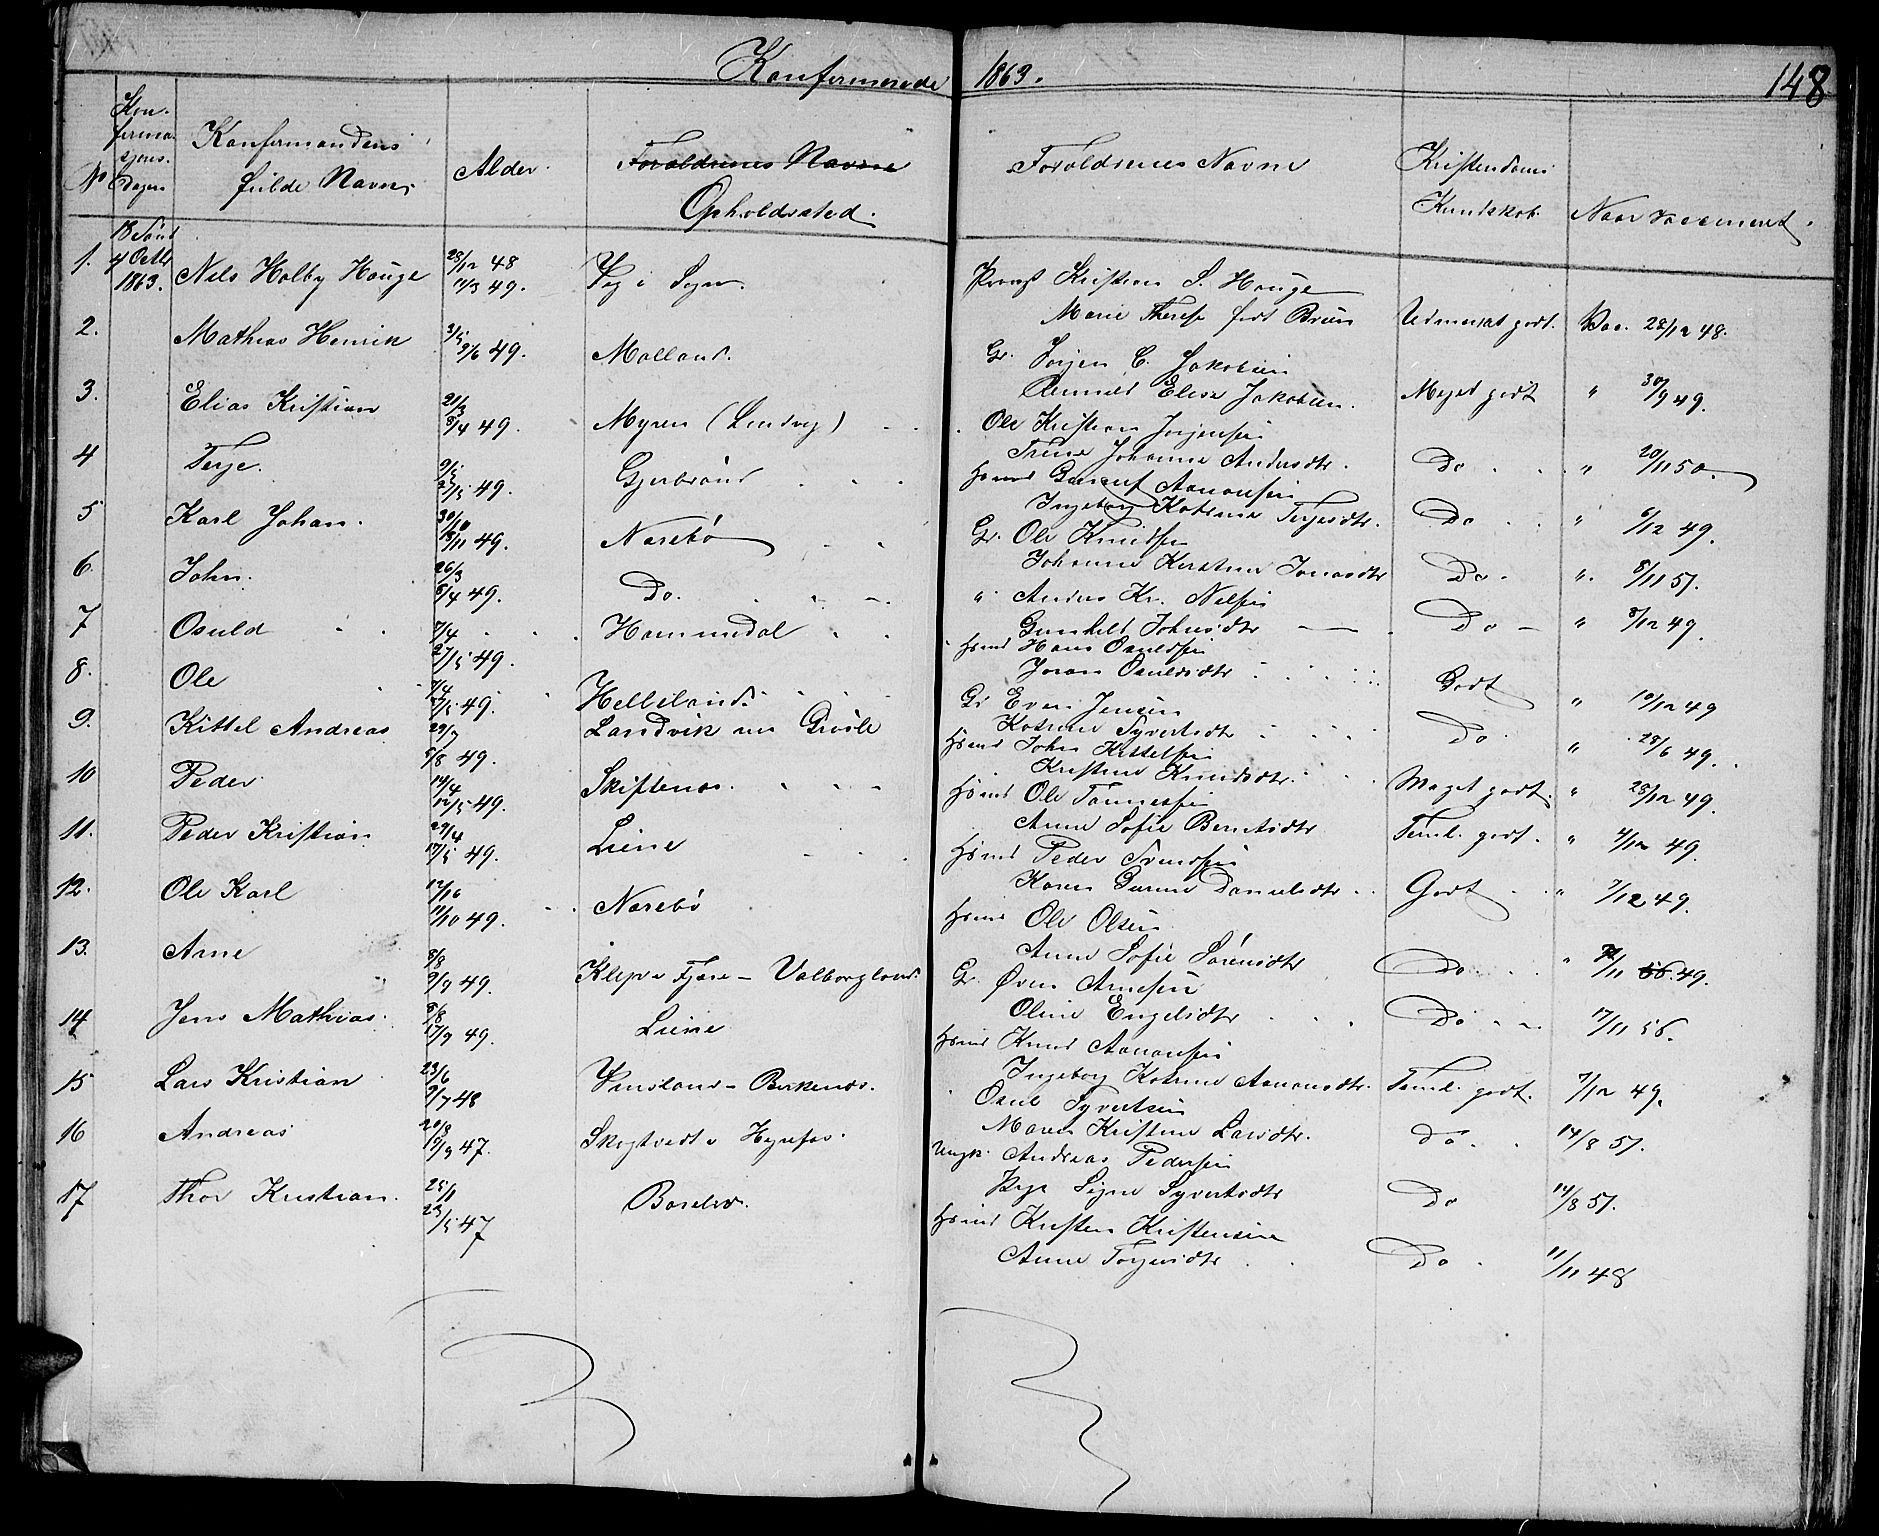 Konfirmerede 1863.
148
No
Kon-
firma-
sjons-
Dagen
Konfirmandens
fulde Navn
Alder.
Foreldrenes Navne
Opholdssted.
Foreldrenes Navne
Kristendoms
Kundskab.
Naar vaccineret.
18 Sønd
4 Octbr
1863.
1. Nels Holby Hauge 28/12 48 11/3 49. Præst Kristen S. Hauge
Marie Therese født Brun Udmerket godt. Vac. 28/12 48.
2. Mathias Henrik 49. Molland. Gr. Jørgen C. Jakobsen
Elise Jakobsen. Meget godt " 30/9 49.
3. Elias Kristian 21/3 8/4 49. Myren (Landvig) Ole Kristian Jørgensen
Trine Johanne Andersdtr. Do " 20/11 50
4 Terje. 9/5 27/5 49. Gjerbrønd Hsmd Gunuf Aanonsen
Ingeborg Katrine Terjesdtr. Do " 6/12 49.
5 Karl Johan. 30/10 18/11 49. Narebø Gr. Ole Knudsen
Johanne Kirstine Jonasdtr Do " 8/11 51.
6. John. 26/3 8/4 49. Do. " Anders Kr. Nelsen
Gunhild Johnsdtr Do " 8/12 49.
7 Osuld 7/4 27/5 49. Hommedal Hsmd Hans Osuldsen
Joran Osuldsdtr Godt " 10/12 49
8. Ole 7/4 49. Helleland Gr Even Jensen
Katrine Syvertsdtr Do " 28/6 49.
9. Kittel Andreas 29/7 5/8 49. Landvik Hsmd John Kittelsen
Kristine Knudsdtr. Meget godt. " 28/12 49.
10 Peder 14/4 12/5 49. Skiftenes. Hsmd Ole Tønnessen
Anne Sofie Berntsdtr Teml. godt. " 4/12 49.
11. Peder Kristian 29/4 17/5 49. Liene Hsmd Peder Svendsen
Karen Gurine Danielsdtr Godt " 7/12 49.
12. Ole Karl 49. Narebø Hsmd Ole Olsen
Anne Sofie Sørensdtr Do " 56. 49.
13. Arne 8/8 9/9 49. Klep i Fjære - Valborgland. Gr. Øven Arnesen
Oline Engelsdtr Do 17/11 56.
14 Jens Mathias. 8/8 17/9 49. Liene Hsmd Knud Aanonsen
Ingeborg Katrine Aanonsdtr. Teml. godt. 7/12 49.
15 Lars Kristian 23/6 9/7 48 Birkenes. Osul Syvertsen
Maren Kristine Larsdtr. Do. 14/8 51.
16 Andreas 20/8 19/9 47. Skogtvedt i Herefos. Ungk. Andreas Pedersen
Pige Signe Syvertsdtr Do 14/8 51.
17 Thor Kristian. 47 Hsmd Kristen Kristensen
Anne Torjersdtr Do 11/11 48